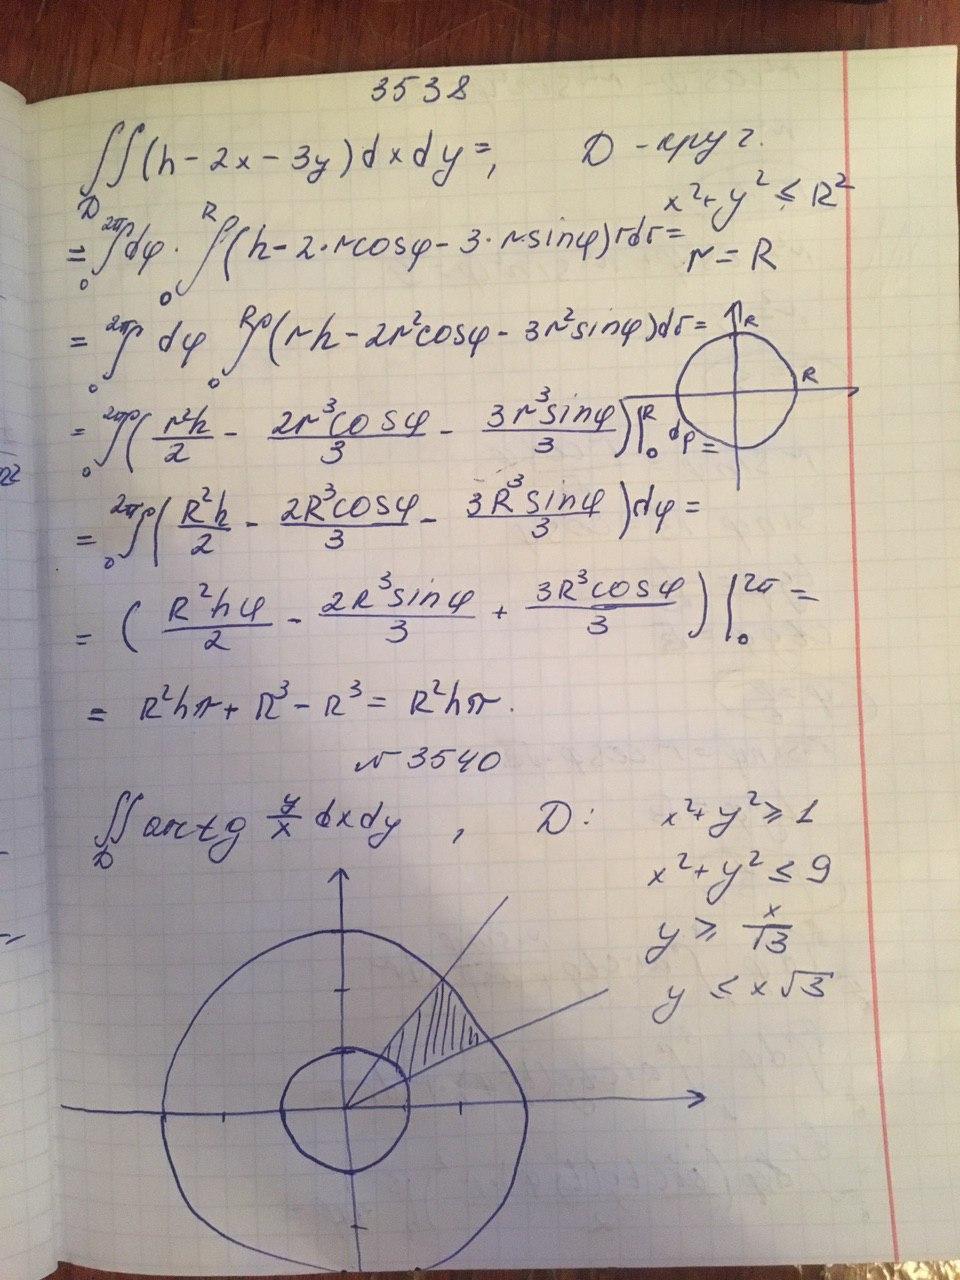 3538
∬_D (h - 2x - 3y) dx dy =, D - круг.
x² + y² ≤ R²
= ∫₀^{2π} dφ · ∫₀^R (h - 2·r cosφ - 3·r sinφ) r dr =
r = R
= ∫₀^{2π} dφ ∫₀^R (rh - 2r² cosφ - 3r² sinφ) dr =
R
R
= ∫₀^{2π} (r²h/2 - 2r³cosφ/3 - 3r³sinφ/3) |₀^R dφ =
= ∫₀^{2π} (R²h/2 - 2R³cosφ/3 - 3R³sinφ/3) dφ =
= (R²hφ/2 - 2R³sinφ/3 + 3R³cosφ/3) |₀^{2π} =
= R²hπ + R³ - R³ = R²hπ.
N 3540
∬_D arctg y/x dx dy , D: x² + y² ≥ 1
x² + y² ≤ 9
y ≥ x/√3
y ≤ x√3